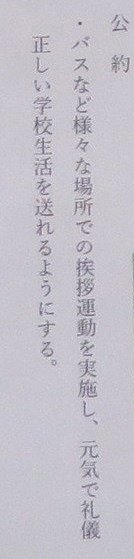 公約
・バスなど様々な場所での挨拶運動を実施し、元気で礼儀
正しい学校生活を送れるようにする。